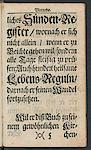 Vorrede.
liches Sünden-Re-
gister / wornach er sich
nicht allein / wenn er zu
Beichte gehen will, sondern
alle Tage fleissig zu prü-
fen; Auch hundert heilsame
Lebens-Reguln /
darnach er seinen Wandel
fortzusetzen.
Will er diß Buch zu sei-
nem gewöhnlichen Kir-
chen-